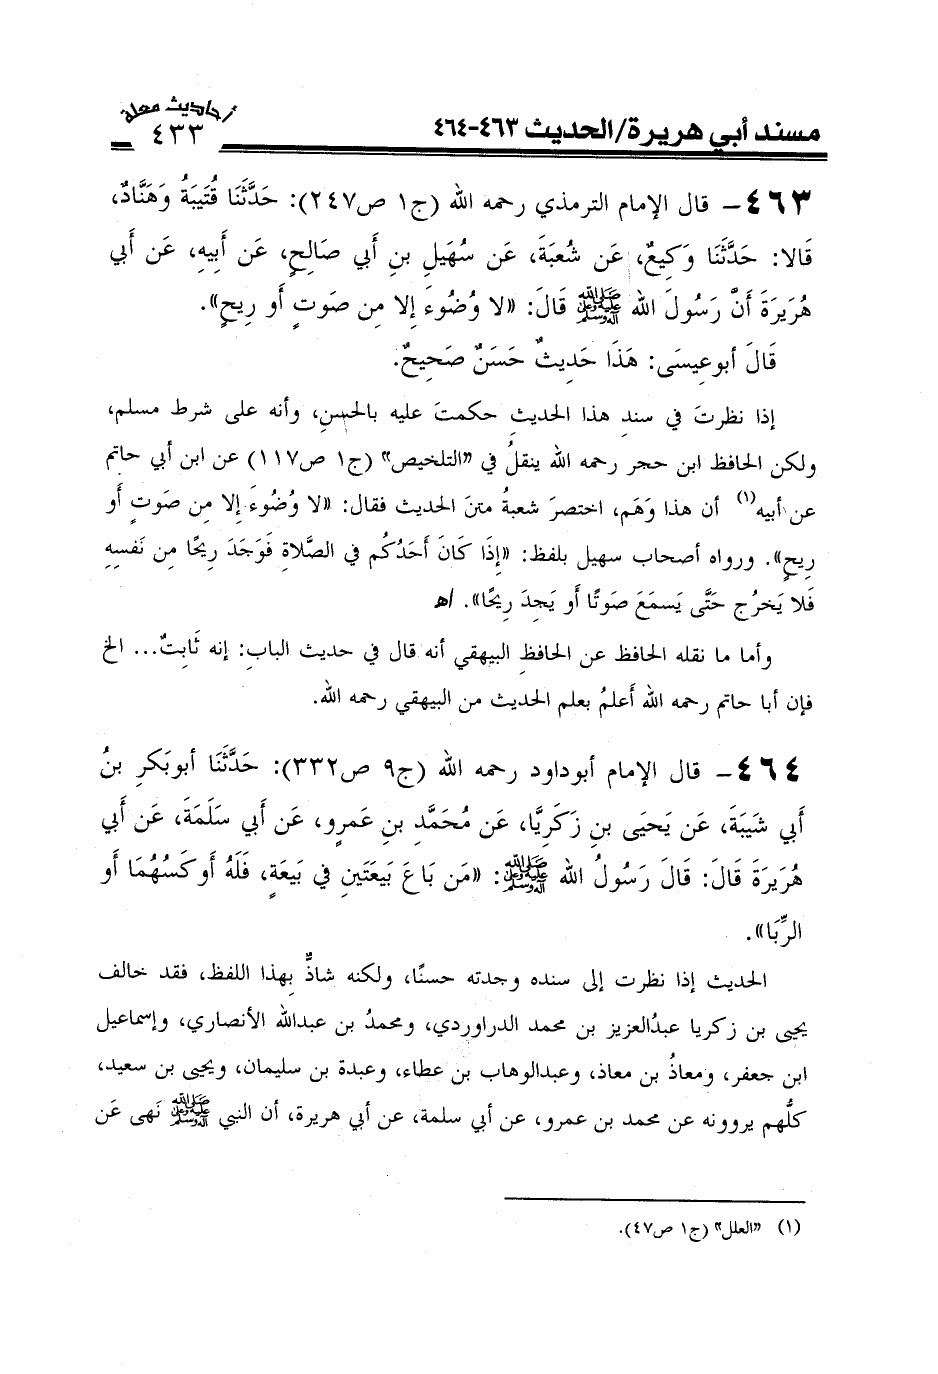 مسند أبي هريرة/الحديث ٤٦٣-٤٦٤
أحاديث معلة
٤٣٣
٤٦٣- قال الإمام الترمذي رحمه الله (ج١ ص٢٤٧): حَدَّثَنَا قُتَيبَةُ وَهَنَّادٌ،
قَالا: حَدَّثَنَا وَكِيعٌ، عَن شُعبَةَ، عَن سُهَيلِ بنِ أَبي صَالِحٍ، عَن أَبِيهِ، عَن أَبي
هُرَيرَةَ أَنَّ رَسُولَ الله ﷺ قَالَ: «لا وُضُوءَ إِلا مِن صَوتٍ أَو رِيحٍ».
قَالَ أبوعِيسَى: هَذَا حَدِيثٌ حَسَنٌ صَحِيحٌ.
إذا نظرتَ في سندِ هذا الحديثِ حكمتَ عليه بالحسنِ، وأنه على شرط مسلم،
ولكن الحافظ ابن حجر رحمه الله ينقلُ في «التلخيص» (ج١ ص١١٧) عن ابن أبي حاتم
عن أبيه(١) أن هذا وَهَم، اختصرَ شعبةُ متنَ الحديث فقال: «لا وُضُوءَ إِلا مِن صَوتٍ أَو
رِيحٍ». ورواه أصحاب سهيل بلفظ: «إِذَا كَانَ أَحَدُكُم في الصَّلاةِ فَوَجَدَ رِيحًا مِن نَفسِهِ
فَلا يَخرُج حَتَّى يَسمَعَ صَوتًا أَو يَجِدَ رِيحًا». اﻫ
وأما ما نقله الحافظ عن الحافظِ البيهقي أنه قال في حديث الباب: إنه ثَابِتٌ... الخ
فإن أبا حاتم رحمه الله أَعلمُ بعلم الحديث من البيهقي رحمه الله.
٤٦٤- قال الإمام أبوداود رحمه الله (ج٩ ص٣٣٢): حَدَّثَنَا أبوبَكرِ بنُ
أَبي شَيبَةَ، عَن يَحيَى بنِ زَكَرِيَّا، عَن مُحَمَّدِ بنِ عَمرٍو، عَن أَبي سَلَمَةَ، عَن أَبي
هُرَيرَةَ قَالَ: قَالَ رَسُولُ الله ﷺ: «مَن بَاعَ بَيعَتَينِ في بَيعَةٍ، فَلَهُ أَوكَسُهُمَا أَو
الرِّبَا».
الحديث إذا نظرت إلى سنده وجدته حسنًا، ولكنه شاذٌّ بِهذا اللفظ، فقد خالف
يحيى بن زكريا عبدُالعزيز بن محمد الدراوردي، ومحمدُ بن عبدالله الأنصاري، وإسماعيل
ابن جعفر، ومعاذُ بن معاذ، وعبدالوهاب بن عطاء، وعبدة بن سليمان، ويحيى بن سعيد،
كلُّهم يروونه عن محمد بن عمرو، عن أبي سلمة، عن أبي هريرة، أن النبي ﷺ نَهى عَن
(١) «العلل» (ج١ ص٤٧).